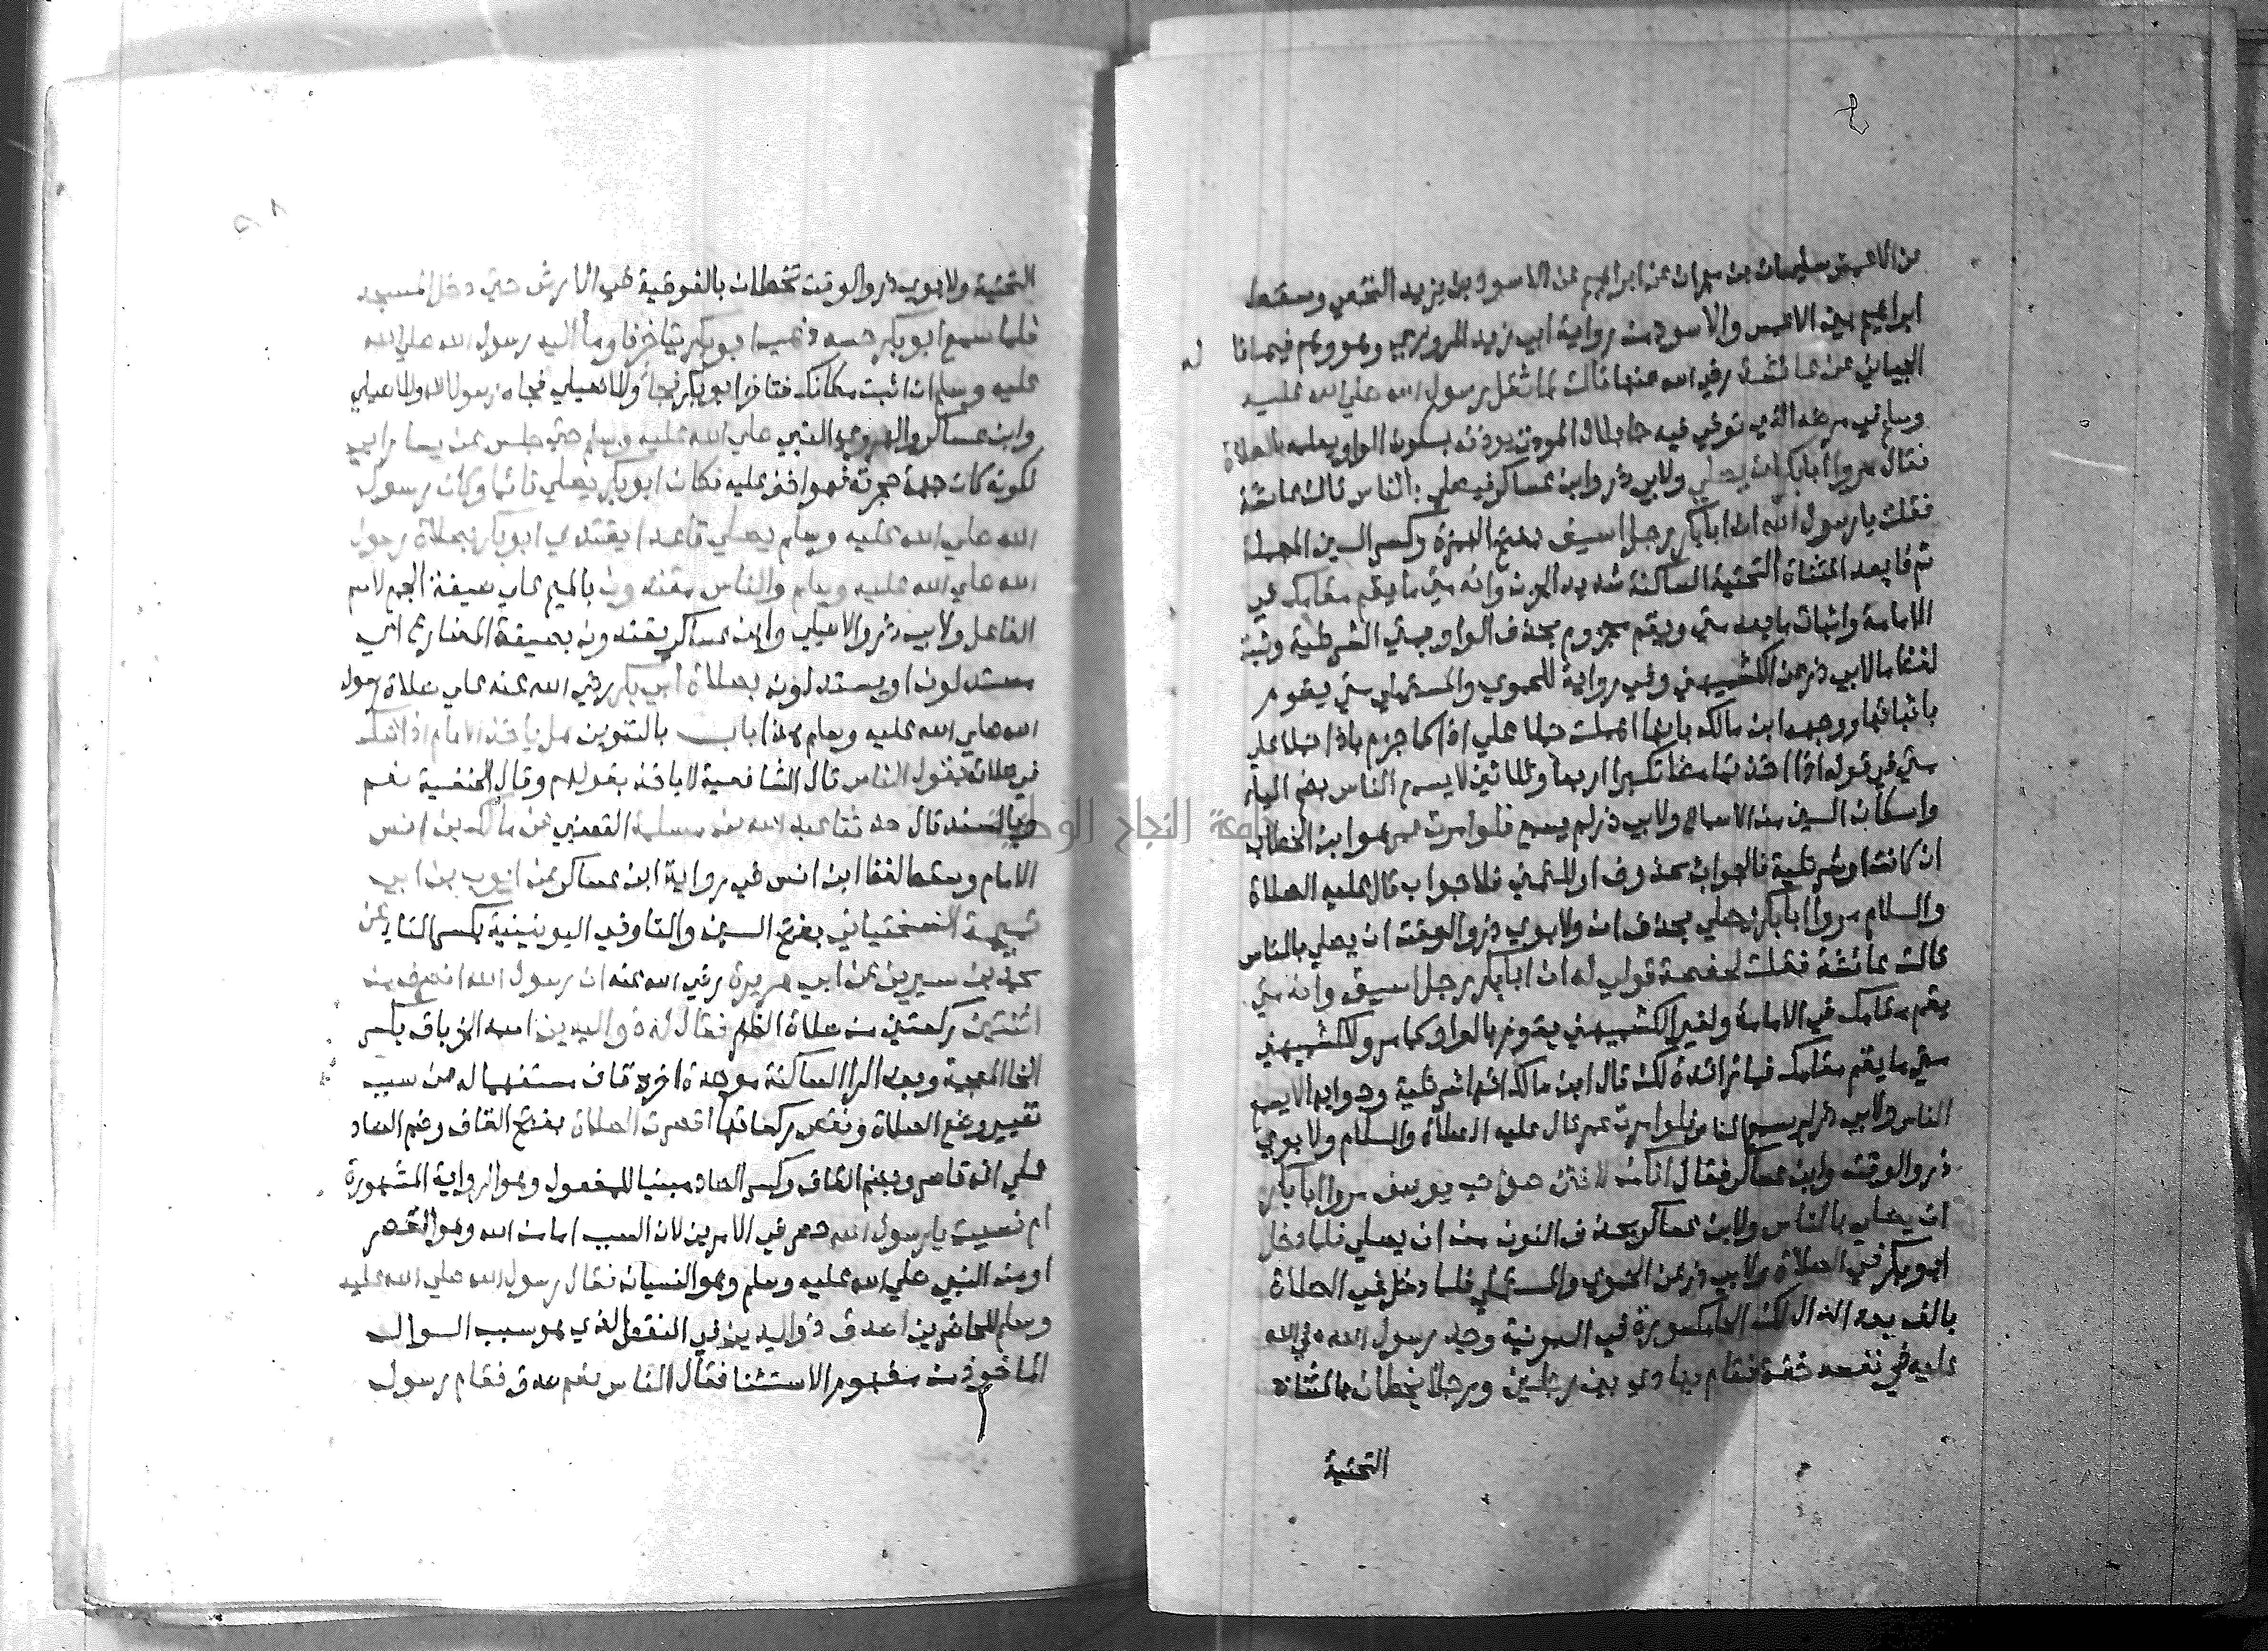 عن الاعمش سليمان بن مهران عن ابراهيم عن الاسود بن يزيد النخعي وسقط
ابراهيم بين الاعمش والاسود من رواية ابي زيد المروزي وهو وهم فيما قا له
الجياني عن عائشة رضي الله عنها قالت لما ثقل رسول الله صلي الله عليه
وسلم في مرضه الذي توفي فيه جا بلال المؤذن يوذنه بسكون الواو يعلمه بالصلاة
فقال مروا ابا بكر ان يصلي ولابي ذر وابن عساكر فيصلي بالناس قالت عائشة
فقلت يا رسول الله ان ابا بكر رجل اسيف بفتح الهمزة وكسر السين المهملة
ثم فا بعد المثناة التحتية الساكنة شديد الحزن وانه متي ما يقم مقامك في
الامامة واثبات ما بعد متي ويقم مجزوم بحذف الواو بمتي الشرطية وثبت
لفظ ما لابي ذر عن الكشميهني وفي رواية للحموي والمستملي متي يقوم
باثباتها ووجهه ابن مالك بانها اهملت حملا علي اذا كما جزم باذا حملا علي
متي في قوله اذا اخذتما مضاجعكما تكبرا اربعا وثلاثين لا يسمع الناس بضم الياء
واسكان السين من الاسماع ولابي ذر لم يسمع فلو امرت عمر هو ابن الخطاب
ان كانت لو شرطية فالجواب محذوف او للتمني فلا جواب قال عليه الصلاة
والسلام مروا ابا بكر يصلي بحذف ان ولابوي ذر والوقت ان يصلي بالناس
قالت عائشة فقلت لحفصة قولي له ان ابا بكر رجل اسيف وانه متي
يقم مقامك في الامامة ولغير الكشميهني يقوم بالواو كما مر وللكشميهني
متي ما يقم مقامك فما زائدة لكن قال ابن مالك انها شرطية وجوابه لا يسمع
الناس ولابي ذر لم يسمع الناس فلو امرت عمر قال عليه الصلاة والسلام ولابوي
ذر والوقت وابن عساكر فقال انكن لانتن صواحب يوسف مروا ابا بكر
ان يصلي بالناس ولابن عساكر بحذف النون من ان يصلي فلما دخل
ابو بكر في الصلاة ولابي ذر عن الحموي والمستملي فلما دخل في الصلاة
بالف بعد الدال لكن الخا مكسورة في اليونينية وجد رسول الله صلي الله
عليه في نفسه خفة فقام يهادي بين رجلين ورجلاه يخطان بالمثناة
التحتية
التحتية ولابوي ذر والوقت تخطان بالفوقية في الارض حتي دخل المسجد
فلما سمع ابو بكر حسه ذهب ابو بكر يتاخر فاومأ اليه رسول الله صلي الله
عليه وسلم ان اثبت مكانك فتاخر ابو بكر فجاء وللاصيلي فجاء رسول الله وللاصيلي
وابن عساكر والهروي النبي صلي الله عليه وسلم حتي جلس عن يسار ابي
لكونه كان جهة حجرته فهو اخف عليه فكان ابو بكر يصلي قائما وكان رسول
الله صلي الله عليه وسلم يصلي قاعدا يقتدي ابو بكر بصلاة رسول
الله صلي الله عليه وسلم والناس مقتدون بالميم علي صيغة الجمع لاسم
الفاعل ولابي ذر والاصيلي وابن عساكر يقتدون بصيغة المضارع اي
مستدلون او يستدلون بصلاة ابي بكر رضي الله عنه علي صلاة رسول
الله صلي الله عليه وسلم هذا باب بالتنوين هل ياخذ الامام اذا شك
في صلاته بقول الناس قال الشافعية لا ياخذ بقولهم وقال الحنفية نعم
وبالسند قال حدثنا عبد الله بن مسلمة القعنبي عن مالك بن انس
الامام وسقط لفظ ابن انس في رواية ابن عساكر عن ايوب بن ابي
تميمة السختياني بفتح السين والتا وفي اليونينية بكسر التا عن
محمد بن سيرين عن ابي هريرة رضي الله عنه ان رسول الله انصرف من
اثنتين ركعتين من صلاة الظهر فقال له ذو اليدين اسمه الخرباق بكسر
الخا المعجمة وبعد الرا الساكنة موحدة اخره قاف مستفهما له عن سبب
تغيير وضع الصلاة ونقص ركعاتها اقصرت الصلاة بفتح القاف وضم الصاد
علي انه قاصر وبضم القاف وكسر الصاد مبنيا للمفعول وهو الرواية المشهورة
ام نسيت يا رسول الله حصر في الامرين لان السبب اما من الله وهو القصر
او من النبي صلي الله عليه وسلم وهو النسيان فقال رسول الله صلي الله عليه
وسلم للحاضرين اصدق ذو اليدين في النقص الذي هو سبب السوال
الماخوذ من مفهوم الاستثنا فقال الناس نعم صدق فقام رسول
جامعة النجاح الوطنية